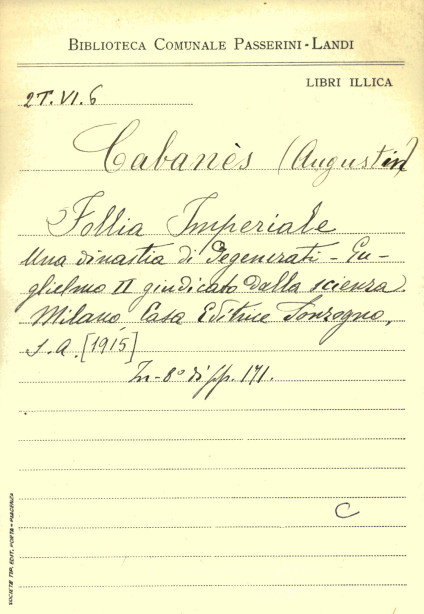 BIBLIOTECA COMUNALE PASSERINI-LANDI
LIBRI ILLICA
2T.VI.6
Cabanès (Augustin)
Follia Imperiale
Una dinastia di Degenerati - Gu-
glielmo II giudicato dalla scienza.
Milano, Casa Editrice Sonzogno,
S.A. [1915]
In-8° di pp. 171.
C
SOCIETÀ TIP. EDIT. PORTA - PIACENZA